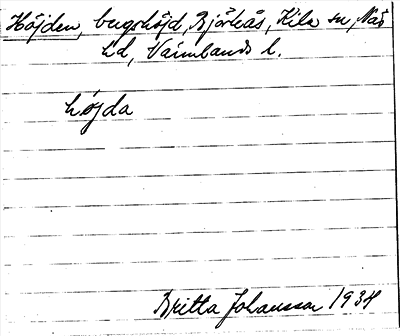 Höjden, bergshöjd, Björkås, Kila sn, Näs
hd, Värmlands l.
höjda
Britta Johansson 1934